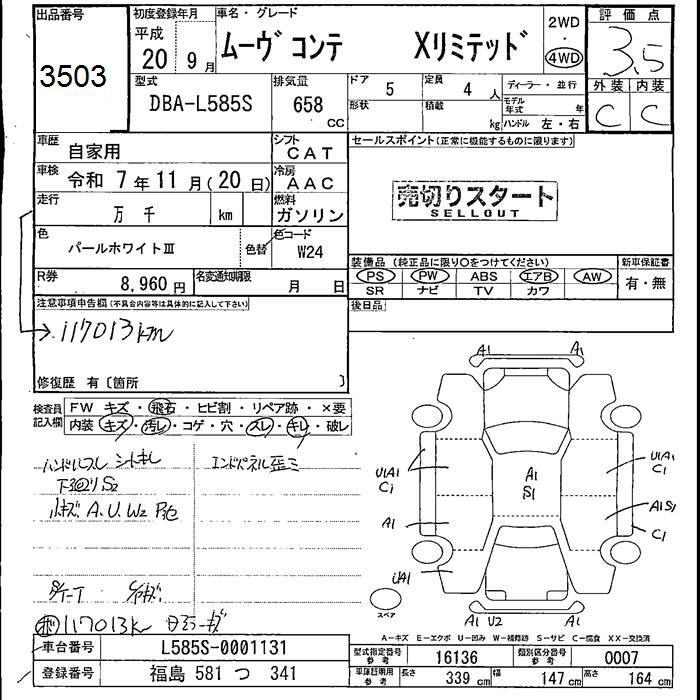 出品番号
3503
初度登録年月
平成
20 年 9 月
車名・グレード
ムーヴ コンテ Xリミテッド
2WD
・
4WD
評価点
3.5
外装 内装
C C
型式
DBA-L585S
排気量
658
CC
ドア 5
定員 4 人
形状
積載 kg
ディーラー・並行
モデル年式 年
ハンドル 左・右
車歴
自家用
シフト
CAT
車検
令和 7 年 11 月 ( 20 日)
冷房
AAC
走行
万 千 km
燃料
ガソリン
色
パールホワイトⅢ
色替
色コード
W24
R券
8,960 円
名変通知期限
月 日
セールスポイント(正常に機能するものに限ります)
売切りスタート
SELLOUT
装備品 (純正品に限り○をつけてください)
PS PW ABS エアB AW
SR ナビ TV カワ
新車保証書
有・無
後日品
注意事項申告欄(不具合内容等は具体的に記入して下さい)
117013km
修復歴 有〔箇所 〕
検査員記入欄
FW キズ・飛石・ヒビ割・リペア跡・×要
内装 キズ・汚レ・コゲ・穴・スレ・キレ・破レ
S2
A.U.W2
117013k
A1 A1
U1A1
C1
A1
A1
S1
U1A1
C1
A1S1
C1
スペア
A1 U2 A1
A-キズ E-エクボ U-凹み W-補修跡 S-サビ C-腐食 XX-交換済
車台番号
L585S-0001131
登録番号
福島 581 つ 341
型式指定番号
参考
16136
類別区分番号
参考
0007
車庫証明用
参考
長さ 339 cm
幅 147 cm
高さ 164 cm